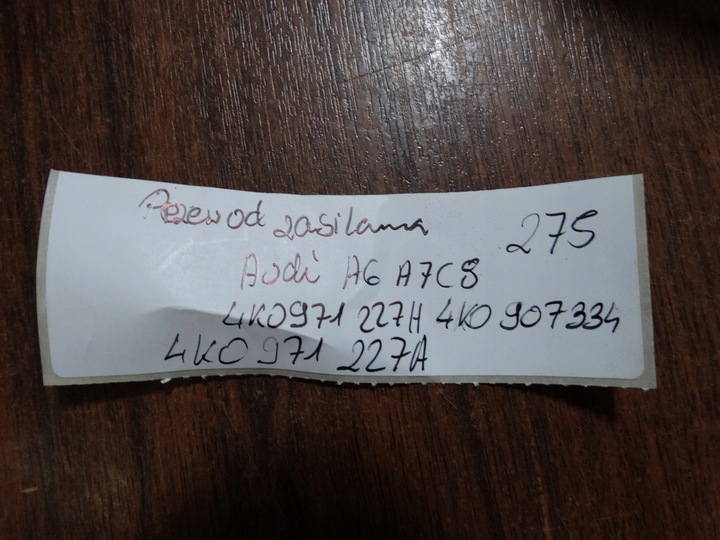 Przewod zasilania 275
Audi A6 A7C8
4K0971 227H 4K0 907334
4K0 971 227A